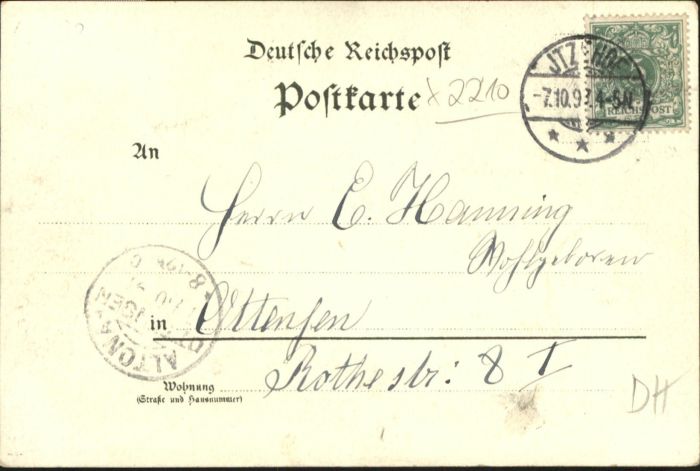 Deutsche Reichspost
Postkarte
x 2210
ITZEHOE
-7.10.9
4-5N
REICHSPOST
An
Herrn E. Hanning
Wohlgeboren
in Ottensen
Rothestr: 8 I
Wohnung
(Straße und Hausnummer)
ALTONA
DH